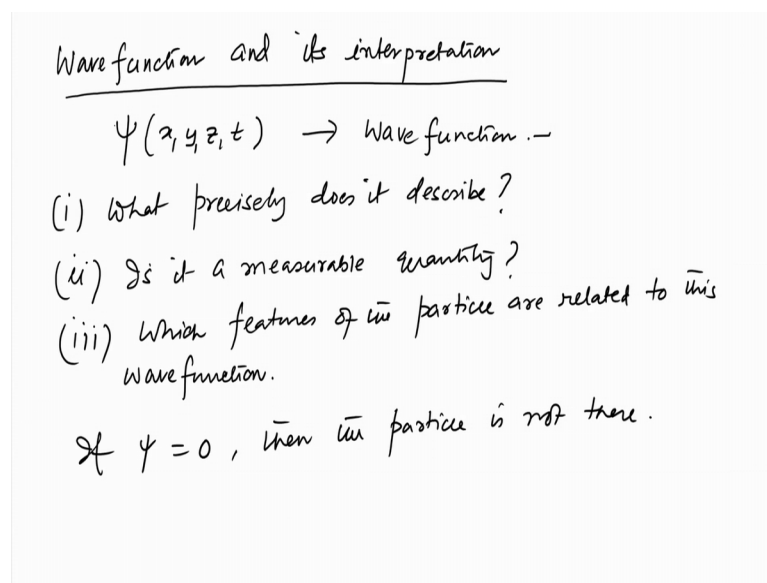 Wave function and its interpretation
Ψ(x, y, z, t) → Wave function .–
(i) What precisely does it describe?
(ii) Is it a measurable quantity?
(iii) Which features of the particle are related to this
wave function.
If Ψ = 0, then the particle is not there.